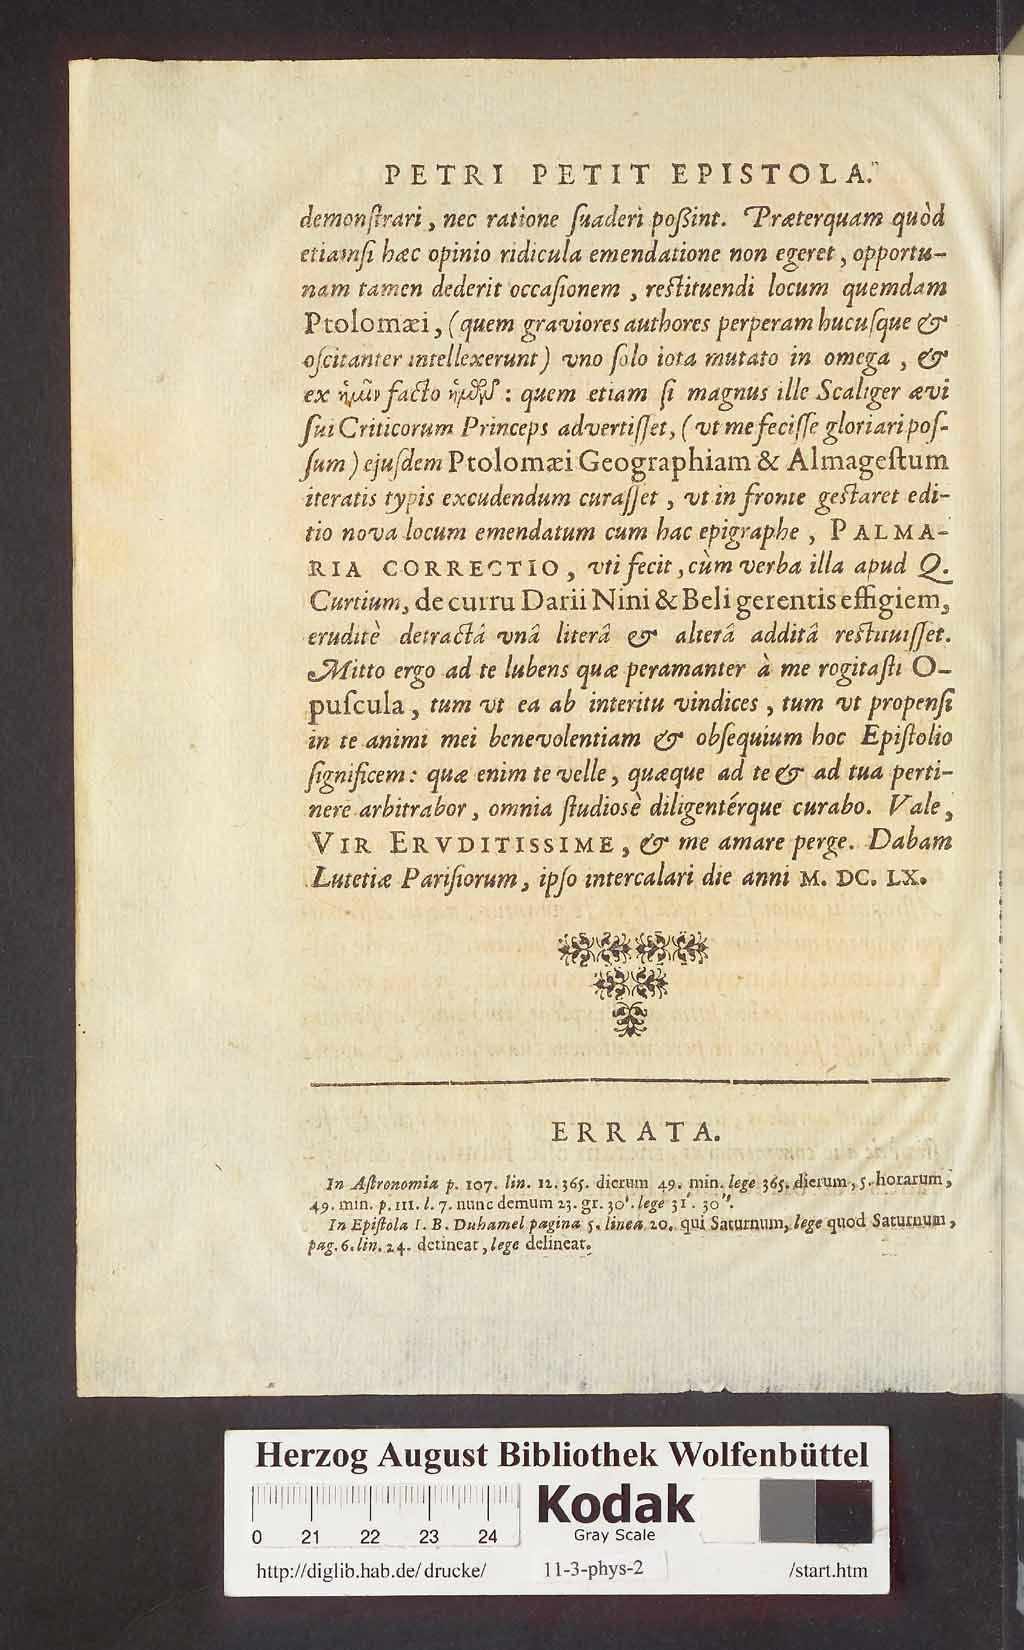 PETRI PETIT EPISTOLA.
demonſtrari, nec ratione ſuaderi poßint. Præterquam quòd
etiamſi hæc opinio ridicula emendatione non egeret, opportu-
nam tamen dederit occaſionem, reſtituendi locum quemdam
Ptolomæi, (quem graviores authores perperam hucuſque &
oſcitanter intellexerunt) vno ſolo iota mutato in omega, &
ex facto : quem etiam ſi magnus ille Scaliger ævi
ſui Criticorum Princeps advertiſſet, (vt me feciſſe gloriari poſ-
ſum) ejuſdem Ptolomæi Geographiam & Almageſtum
iteratis typis excudendum curaſſet, vt in fronte geſtaret edi-
tio nova locum emendatum cum hac epigraphe, PALMA-
RIA CORRECTIO, vti fecit, cùm verba illa apud Q.
Curtium, de curru Darii Nini & Beli gerentis effigiem,
eruditè detractâ vnâ literâ & alterâ additâ reſtituiſſet.
Mitto ergo ad te lubens quæ peramanter à me rogitaſti O-
puſcula, tum vt ea ab interitu vindices, tum vt propenſi
in te animi mei benevolentiam & obſequium hoc Epiſtolio
ſignificem: quæ enim te velle, quæque ad te & ad tua perti-
nere arbitrabor, omnia ſtudiosè diligentérque curabo. Vale,
VIR ERVDITISSIME, & me amare perge. Dabam
Lutetiæ Pariſiorum, ipſo intercalari die anni M. DC. LX.
ERRATA.
In Aſtronomia p. 107. lin. 12. 365. dierum 49. min. lege 365. dierum, 5. horarum,
49. min. p. 111. l. 7. nunc demum 23. gr. 30'. lege 31'. 30".
In Epiſtola I. B. Duhamel pagina 5. linea 20. qui Saturnum, lege quod Saturnum,
pag. 6. lin. 24. detineat, lege delineat.
Herzog August Bibliothek Wolfenbüttel
Kodak
Gray Scale
0 21 22 23 24
http://diglib.hab.de/drucke/ 11-3-phys-2 /start.htm